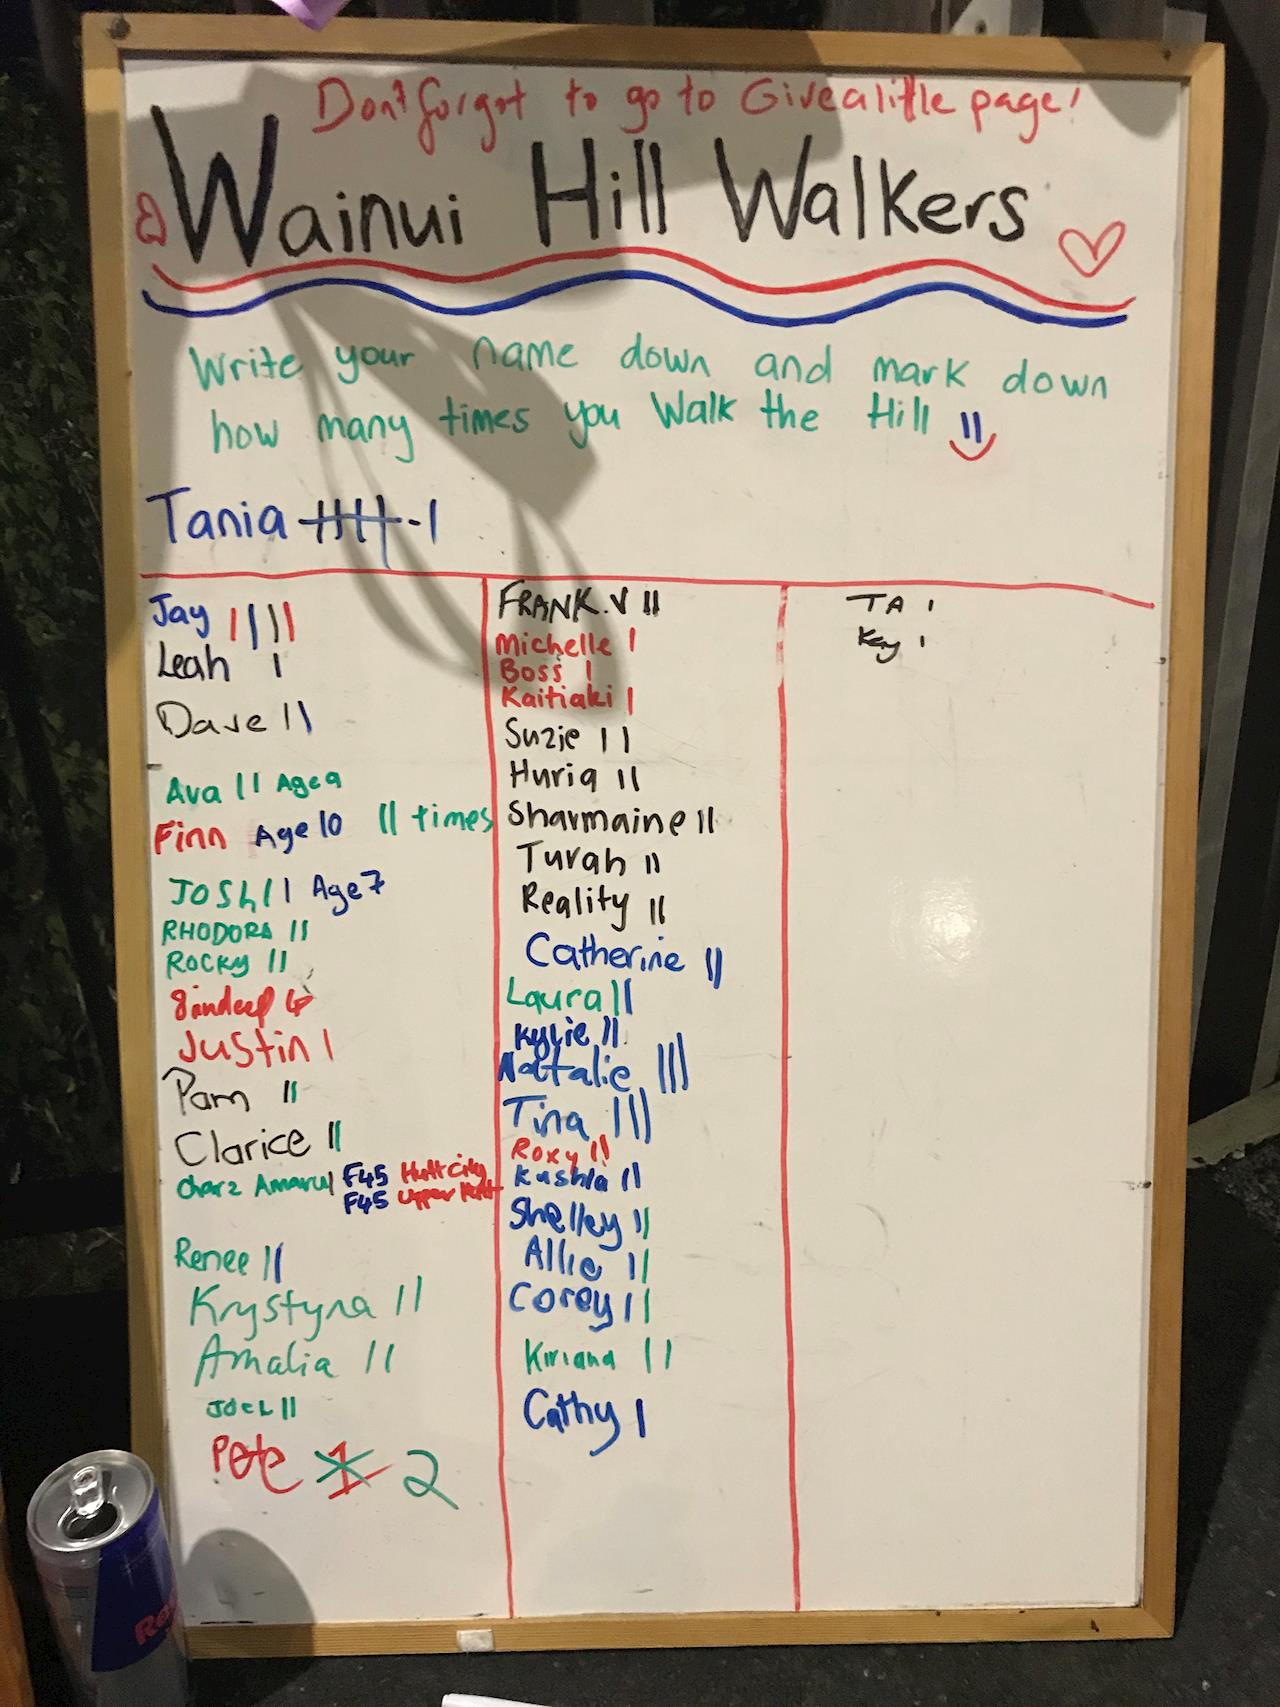 Don't forget to go to Givealittle page!
Wainui Hill Walkers
Write your name down and mark down
how many times you Walk the Hill
Tania |||| - |
Jay ||||
Leah |
Dave ||
Ava || Age 9
Finn Age 10 || times
JOSH || Age 7
RHODORA ||
ROCKY ||
Justin |
Pam ||
Clarice ||
F45 Hutt city
F45 Upper Hutt
Renee ||
Krystyna ||
Amalia ||
JOEL ||
Pete 2
FRANK.V ||
Michelle |
Boss |
Kaitiaki |
Suzie ||
Huria ||
Sharmaine ||
Turah ||
Reality ||
Catherine ||
Laura ||
Kylie ||
Natalie |||
Tina |||
Roxy ||
Kushla ||
Shelley ||
Allie ||
Corey ||
Kiriana ||
Cathy |
TA |
Key |
Red